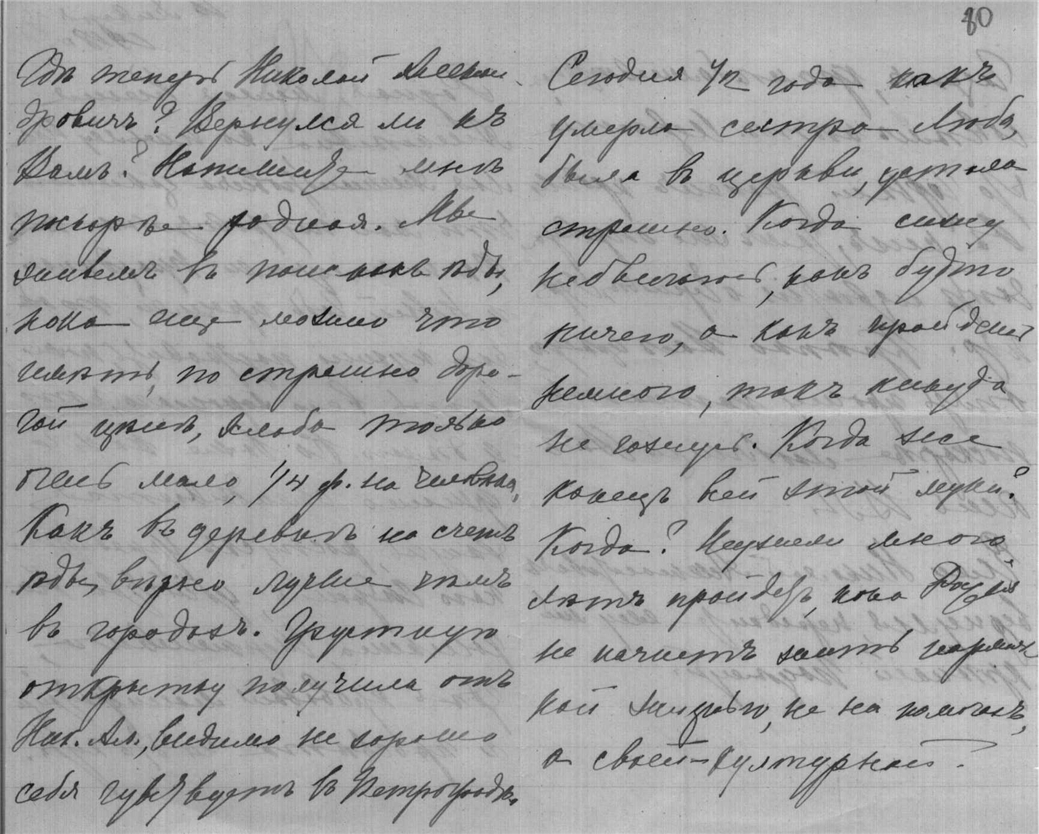 80
Гдѣ теперь Николай Алексан-
дровичъ? Вернулся ли къ
Вамъ? Напишите мнѣ
поскорѣе родная. Мы
живемъ въ поискахъ ѣды,
пока еще можно что
имѣть, но страшно доро-
гой цѣной, хлѣба только
очень мало, 1/4 ф. на человѣка.
Какъ въ деревнѣ на счетъ
ѣды, вѣрно лучше чѣмъ
въ городахъ. Грустную
открытку получила отъ
Ник. Ал., видимо не хорошо
себя чувствуетъ въ Петроградѣ.
Сегодня 1/2 года какъ
умерла сестра Люба,
была въ церкви, устала
страшно. Когда сижу
какъ будто
ничего, а какъ пройдешь
немного, такъ никуда
не гожусь. Когда же
конецъ всей этой муки?
Когда? Неужели много
лѣтъ пройдетъ, пока Россія
не начнетъ жить нормаль-
ной жизнью, не на помочахъ,
а своей-культурной.